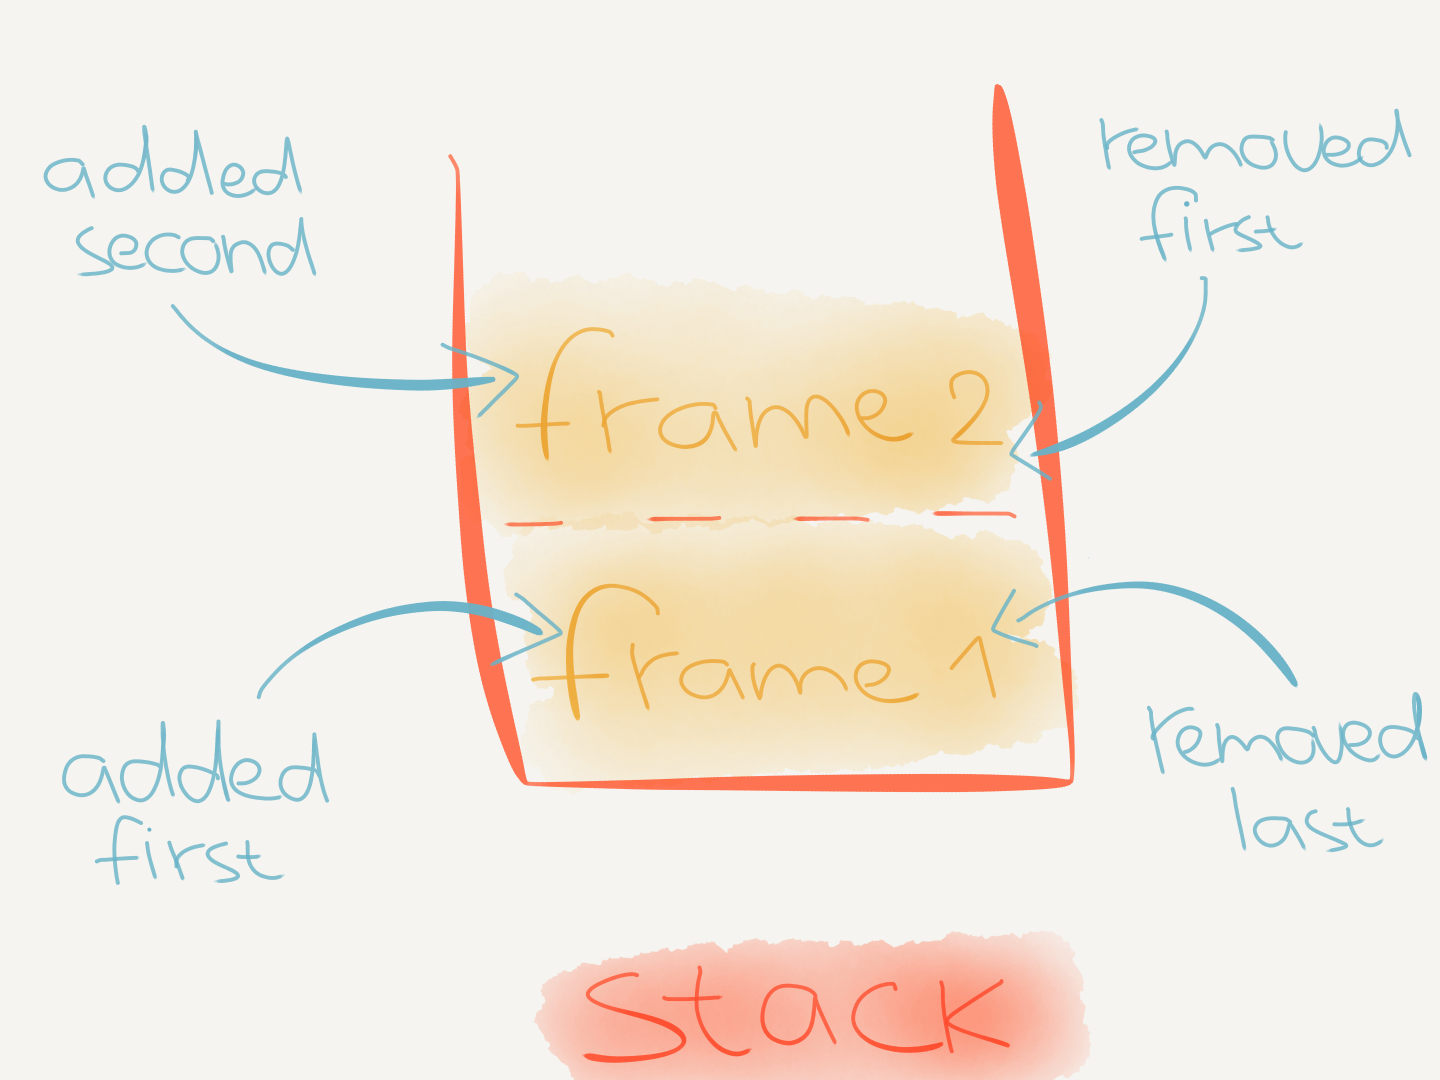 added
second
removed
first
frame 2
frame 1
added
first
removed
last
stack